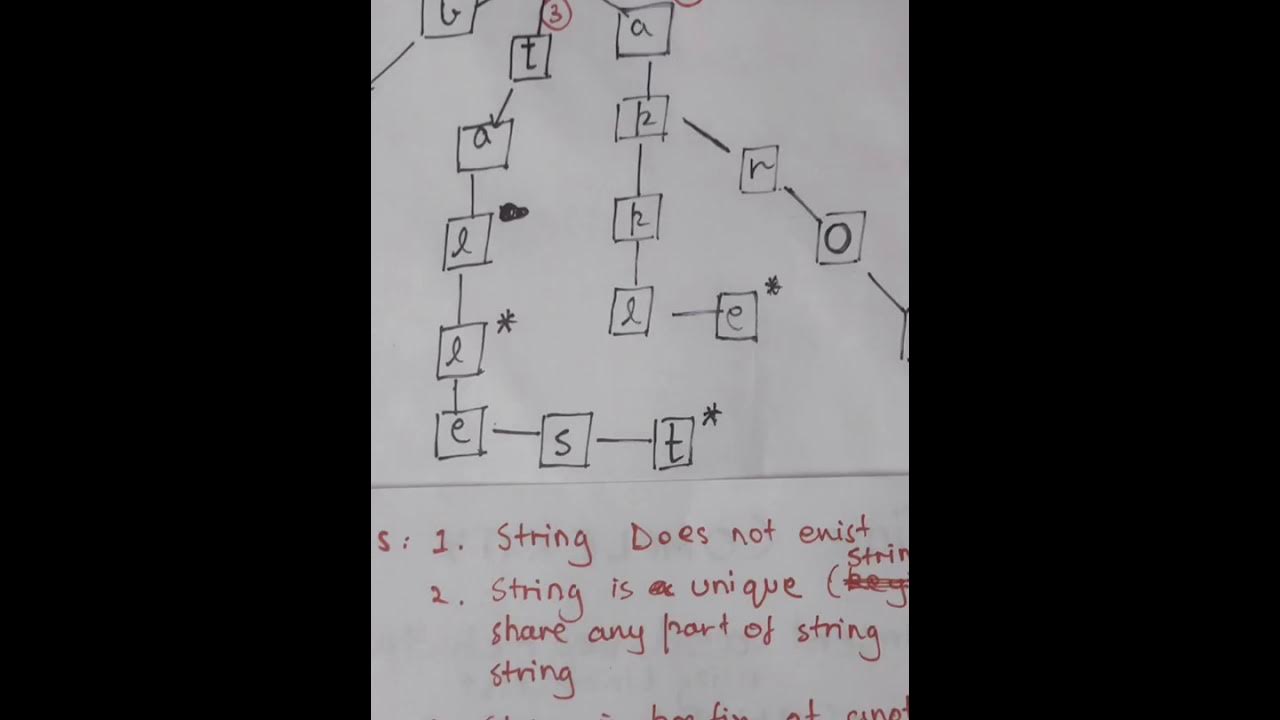 3
t
a
a
p
p
r
l
O
l
e *
l *
e s t *
s: 1. String Does not enist
2. String is a unique (strin
share any part of string
string